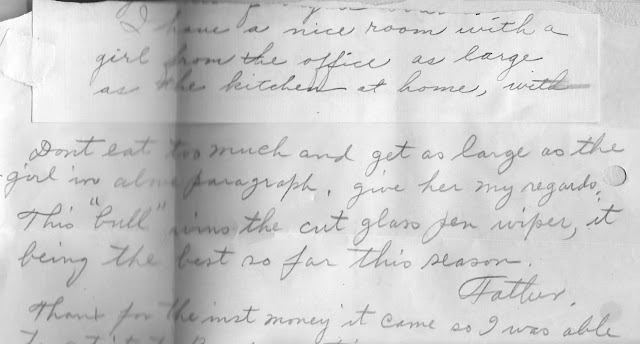 I have a nice room with a
girl from the office as large
as the kitchen at home, with
Dont eat too much and get as large as the
girl in above paragraph, give her my regards.
This "bull" wins the cut glass pen wiper, it
being the best so far this season.
Father.
Thanx for the inst money it came so I was able